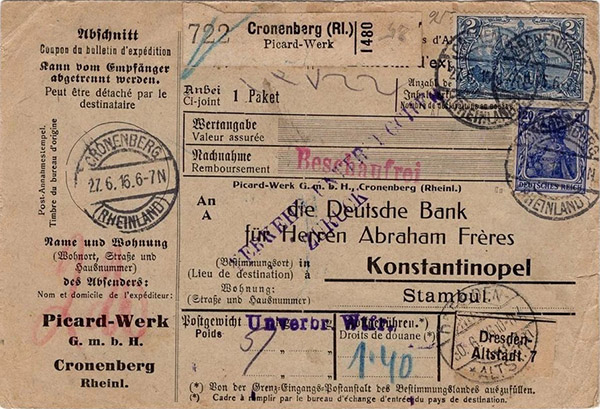 Abschnitt
Coupon du bulletin d'expédition
Kann vom Empfänger
abgetrennt werden.
Peut être détaché par le
destinataire
Post-Annahmestempel.
Timbre du bureau d'origine
CRONENBERG
27.6.16.6-7N
(RHEINLAND)
Name und Wohnung
(Wohnort, Straße und
Hausnummer)
des Absenders:
Nom et domicile de l'expéditeur:
Picard-Werk
G. m. b. H.
Cronenberg
Rheinl.
722
Cronenberg (Rl.)
Picard-Werk
1480
Anbei
Ci-joint
1 Paket
Anzahl
Wertangabe
Valeur assurée
Nachnahme
Remboursement
Beschaufrei
ZURÜCK
2
2
CRONENBERG
(RHEINLAND)
20
DEUTSCHES REICH
CRONENBERG
(RHEINLAND)
Picard-Werk G. m. b. H., Cronenberg (Rheinl.)
An
A
die Deutsche Bank
für Herren Abraham Frères
(Bestimmungsort) in
(Lieu de destination) à
Konstantinopel
Wohnung:
(Straße und Hausnummer)
Stambul.
Postgewicht
Poids
5
Unverbr
Droits de douane (*)
1.40
DRESDEN-
ALTST.
Dresden-
Altstadt. 7
(*) Von der Grenz-Eingangs-Postanstalt des Bestimmungslandes auszufüllen.
(*) Cadre à remplir par le bureau d'échange d'entrée du pays de destination.